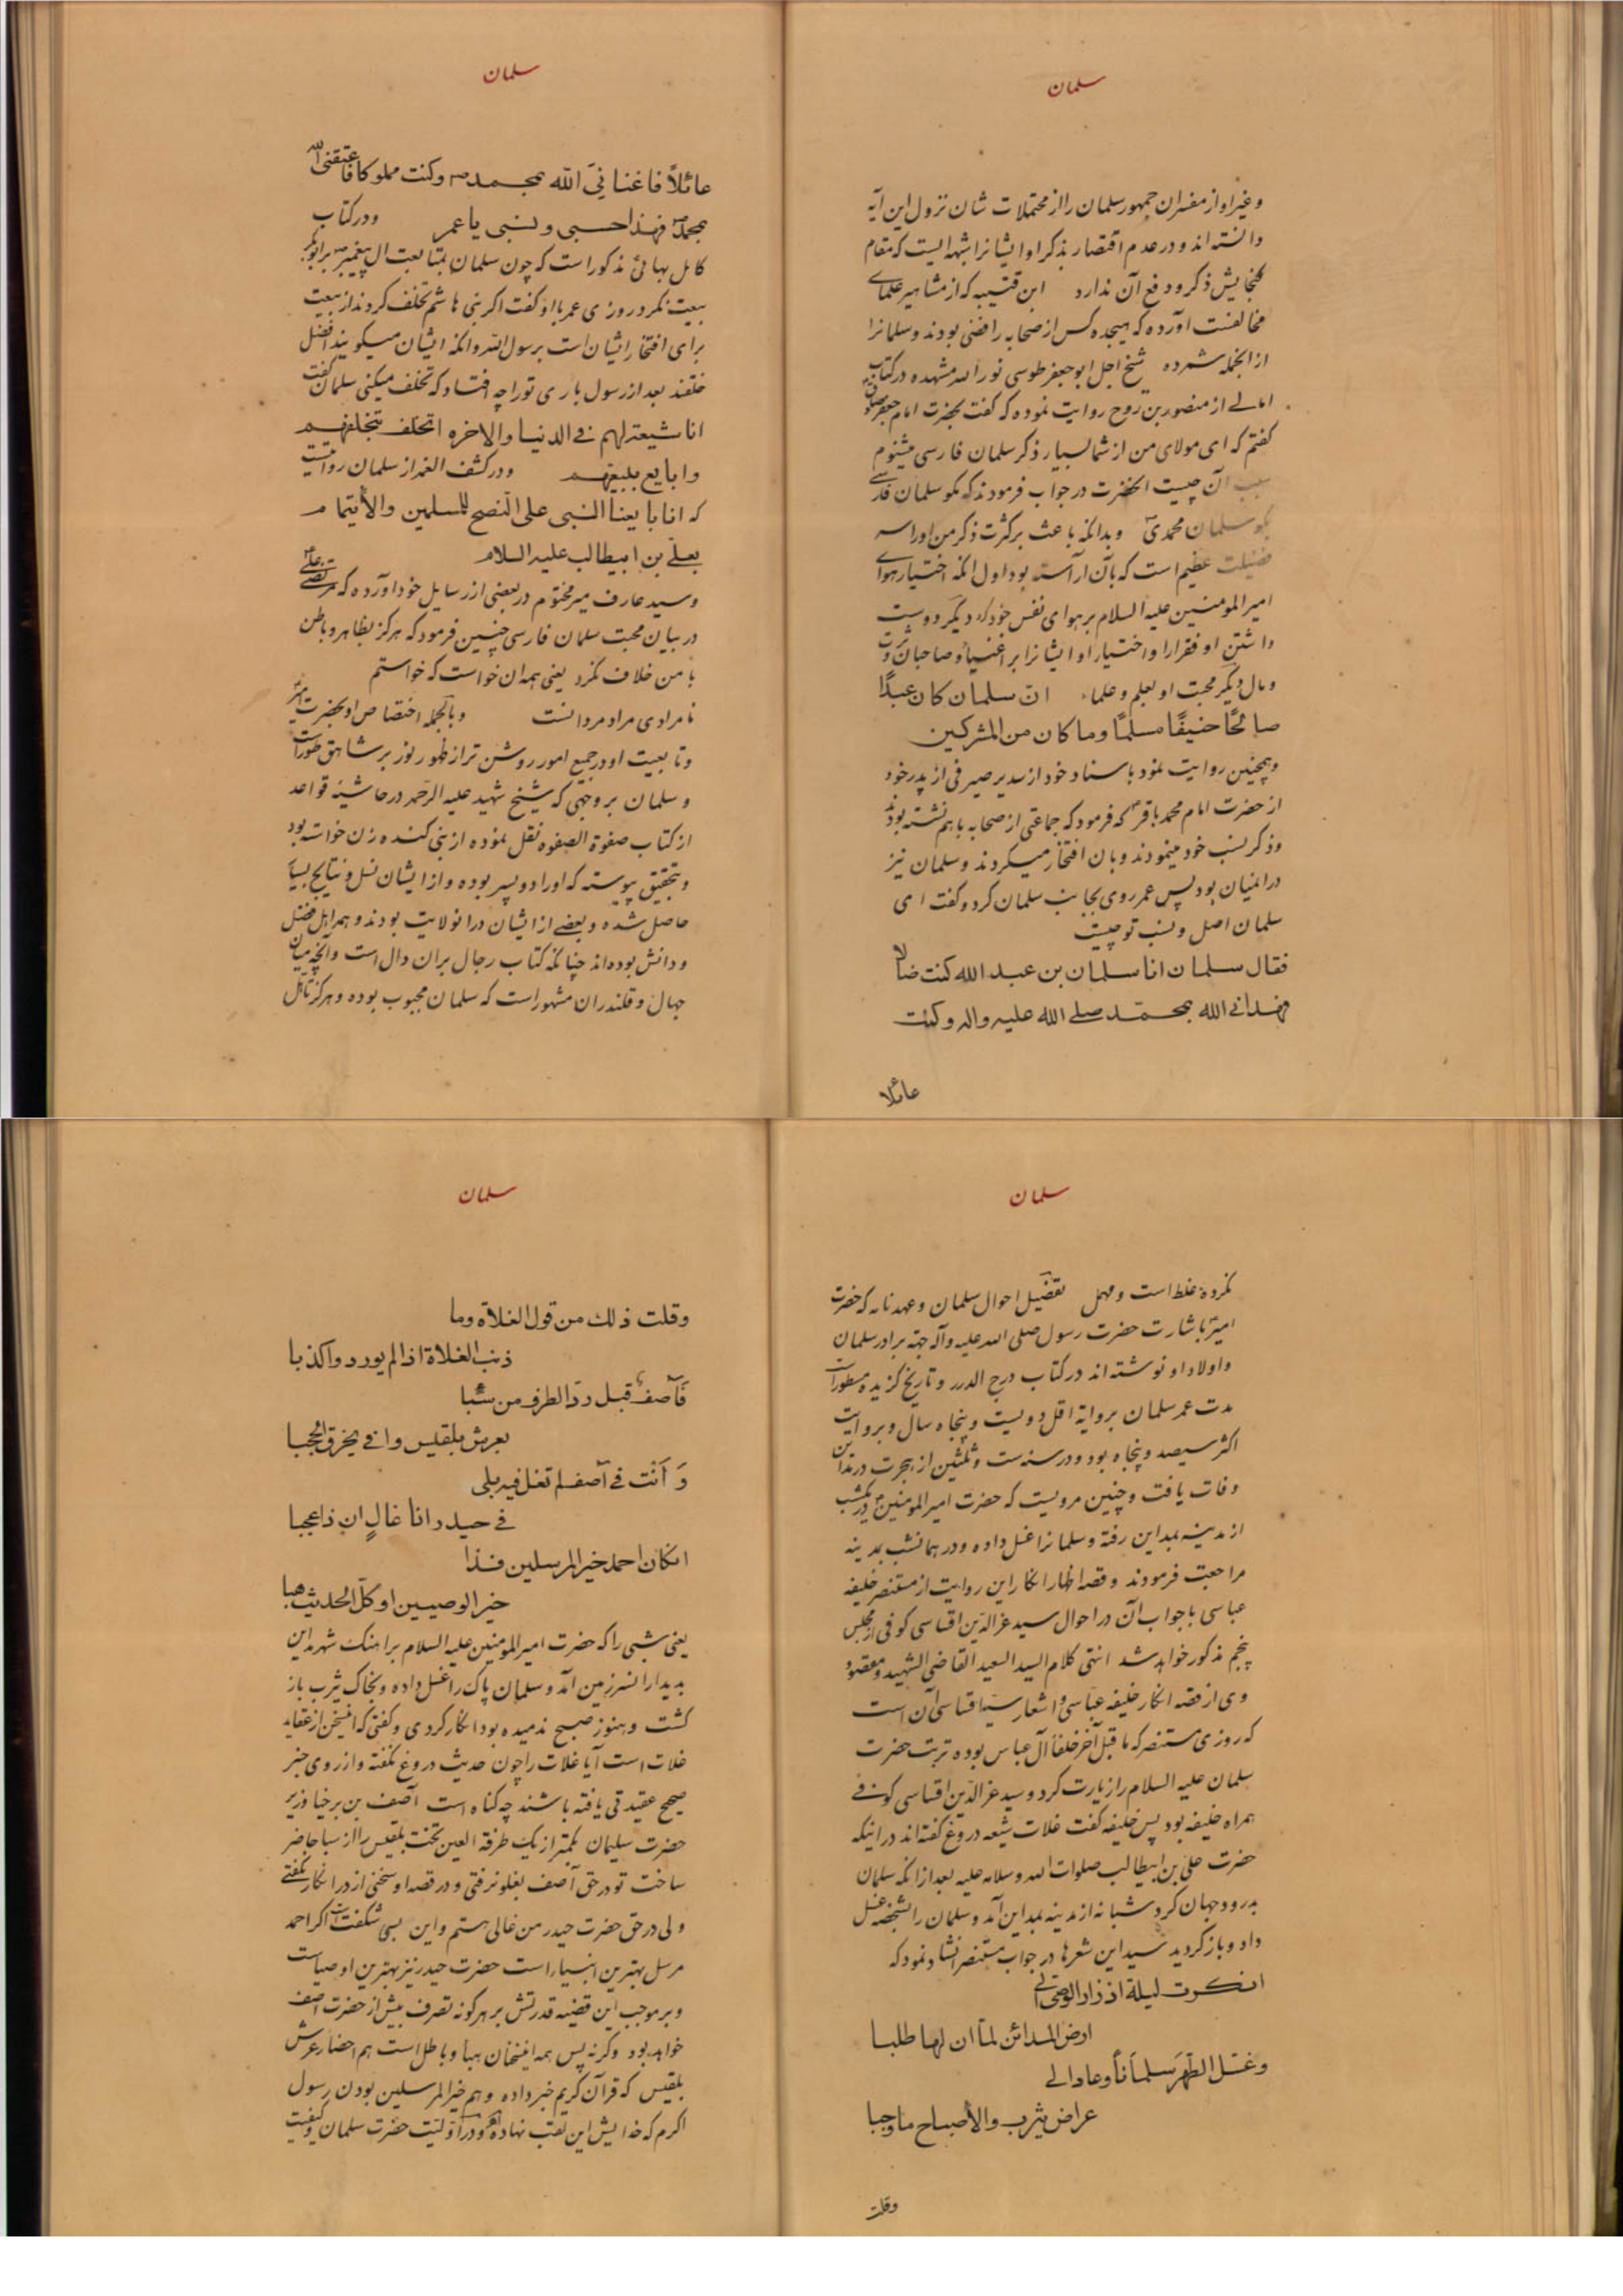 سلمان
وغیر او از مفسران جمهور سلمان را از محتملات شان نزول این آیه
دانسته اند و در عدم اقتصار بذکر او ایشانرا شبهه ایست که مقام
گنجایش ذکر و دفع آن ندارد ابن قتیبه که از مشاهیر علمای
مخالفست آورده که هیجده کس از صحابه رافضی بودند و سلمانرا
از انجمله شمرده شیخ اجل ابو جعفر طوسی نور الله مشهده در کتاب
امالی از منصور بن روح روایت نموده که گفت بحضرت امام جعفر صادق
گفتم که ای مولای من از شما بسیار ذکر سلمان فارسی میشنوم
سبب آن چیست آنحضرت در جواب فرمودند که مگو سلمان فارسی
بگو سلمان محمدی و بدانکه باعث بر کثرت ذکر من او را سه
فضیلت عظیم است که بآن آراسته بود اول آنکه اختیار هوای
امیر المومنین علیه السلام بر هوای نفس خود کرد دیگر دوست
داشتن او فقرا را و اختیار او ایشانرا بر اغنیا و صاحبان ثروت
و مال دیگر محبت او بعلم و علماء ان سلمان کان عبدًا
صالحًا حنیفًا مسلمًا وما کان من المشرکین
وهمچنین روایت نمود باسناد خود از سدیر صیرفی از پدر خود
از حضرت امام محمد باقر که فرمود که جماعتی از صحابه باهم نشسته بودند
وذکر نسب خود مینمودند و بان افتخار میکردند و سلمان نیز
در انمیان بود پس عمر روی بجانب سلمان کرد و گفت ای
سلمان اصل و نسب تو چیست
فقال سلمان انا سلمان بن عبد الله کنت ضالا
فهدانی الله بمحمّد صلی الله علیه واله وکنت
عائلا
سلمان
عائلاً فاغنانی الله بمحمد ص وکنت مملوکا فاعتقنی الله
بمحمد فهذا حسبی ونسبی یا عمر ودر کتاب
کامل بهائی مذکور است که چون سلمان بمتابعت ال پیغمبر بر ابو بکر
بیعت نکرد روزی عمر با او گفت اگر بنی هاشم تخلف کردند از بیعت
برای افتخار ایشان است برسول الله و انکه ایشان میگویند افضل
خلقند بعد از رسول باری تو را چه افتاد که تخلف میکنی سلمان گفت
انا شیعة لهم فی الدنیا والاخره اتخلف بتخلفهم
وابایع ببیعتهم ودر کشف الغمه از سلمان روایتست
که انا بایعنا النبی علی النصح للمسلمین والأیتمام
بعلی بن ابیطالب علیه السلام
وسید عارف میر مختوم در بعضی از رسایل خود آورده که مرتضی علی
در بیان محبت سلمان فارسی چنین فرمود که هرگز بظاهر و باطن
با من خلاف نکرد یعنی همه ان خواست که خواستم
نامرادی مراد مردانست وبالجمله اختصاص او بحضرت امیر
وتابعیت او در جمیع امور روشن تر از ظهور نور بر شاهق طور است
وسلمان بر وجهی که شیخ شهید علیه الرحمه در حاشیه قواعد
از کتاب صفوة الصفوه نقل نموده از بنی کنده زن خواسته بود
وبتحقیق پیوسته که او را دو پسر بوده و از ایشان نسل و نتایج بسیار
حاصل شده و بعضی از ایشان در انولایت بودند و همه اهل فضل
و دانش بوده اند چنانکه کتاب رجال بران دال است و آنچه میان
جهال و قلندران مشهور است که سلمان مجبوب بوده و هرگز تاهل
سلمان
نکرده غلط است و مهمل تفصیل احوال سلمان و عهدنامه که حضرت
امیر باشارت حضرت رسول صلی الله علیه وآله جهة برادر سلمان
و اولاد او نوشته اند در کتاب درج الدرر و تاریخ گزیده مسطور است
مدت عمر سلمان بروایة اقل دویست و پنجاه سال و بروایت
اکثر سیصد و پنجاه بود و در سنه ست و ثلثین از هجرت در مداین
وفات یافت و چنین مرویست که حضرت امیر المومنین در یکشب
از مدینه بمداین رفته و سلمانرا غسل داده و در همانشب بمدینه
مراجعت فرمودند و قصه اظهار انکار این روایت از مستنصر خلیفه
عباسی با جواب آن در احوال سید عز الدین اقساسی کوفی از مجلس
پنجم مذکور خواهد شد انتهی کلام السید السعید القاضی الشهید و مقصود
وی از قصه انکار خلیفه عباسی و اشعار سید اقساسی آن است
که روزی مستنصر که ما قبل آخر خلفا آل عباس بوده تربت حضرت
سلمان علیه السلام را زیارت کرد و سید عز الدین اقساسی کوفی
همراه خلیفه بود پس خلیفه گفت غلات شیعه دروغ گفته اند در اینکه
حضرت علی بن ابیطالب صلوات الله وسلامه علیه بعد از انکه سلمان
بدرود جهان کرد شبانه از مدینه بمداین آمد و سلمان را بشخصه غسل
داد و باز گردید سید این شعرها در جواب مستنصر انشاد نمود که
انکرت لیلة اذ زار الوصی الی
ارض المدائن لمّا ان لها طلبا
وغسّل الطّهر سلمانًا وعاد الی
عراص یثرب والأصباح ما وجبا
وقلت
سلمان
وقلت ذلك من قول الغلاة وما
ذنب الغلاة اذا لم یوردوا کذبا
فآصف قبل ردّ الطرف من سبا
بعرش بلقیس وافی یخرق الحجبا
وَ اَنت فی آصف لم تغل فیه بلی
فی حیدر انا غالٍ ان ذا عجبا
انکان احمد خیر المرسلین فذا
خیر الوصیین او کلّ الحدیث هبا
یعنی شبی را که حضرت امیر المومنین علیه السلام براهنگ شهر مداین
بدیدار انسرزمین آمد و سلمان پاک را غسل داده و بخاک یثرب باز
گشت و هنوز صبح ندمیده بود انکار کردی و گفتی که اینسخن از عقاید
غلات است آیا غلات را چون حدیث دروغ نگفته و از روی خبر
صحیح عقیدتی یافته باشند چه گناه است آصف بن برخیا وزیر
حضرت سلیمان بکمتر از یک طرفة العین تخت بلقیس را از سبا حاضر
ساخت تو در حق آصف بغلو نرفتی و در قصه او سخنی از در انکار نگفتی
ولی در حق حضرت حیدر من غالی هستم و این بسی شگفت است اگر احمد
مرسل بهترین انبیاء است حضرت حیدر نیز بهترین اوصیاست
وبر موجب این قضیه قدرتش بر هرگونه تصرف بیش از حضرت آصف
خواهد بود وگرنه پس همه اینسخنان هبا و باطل است هم احضار عرش
بلقیس که قرآن کریم خبر داده و هم خیر المرسلین بودن رسول
اکرم که خدایش این لقب نهاده و در اولیت حضرت سلمان و کیفیت